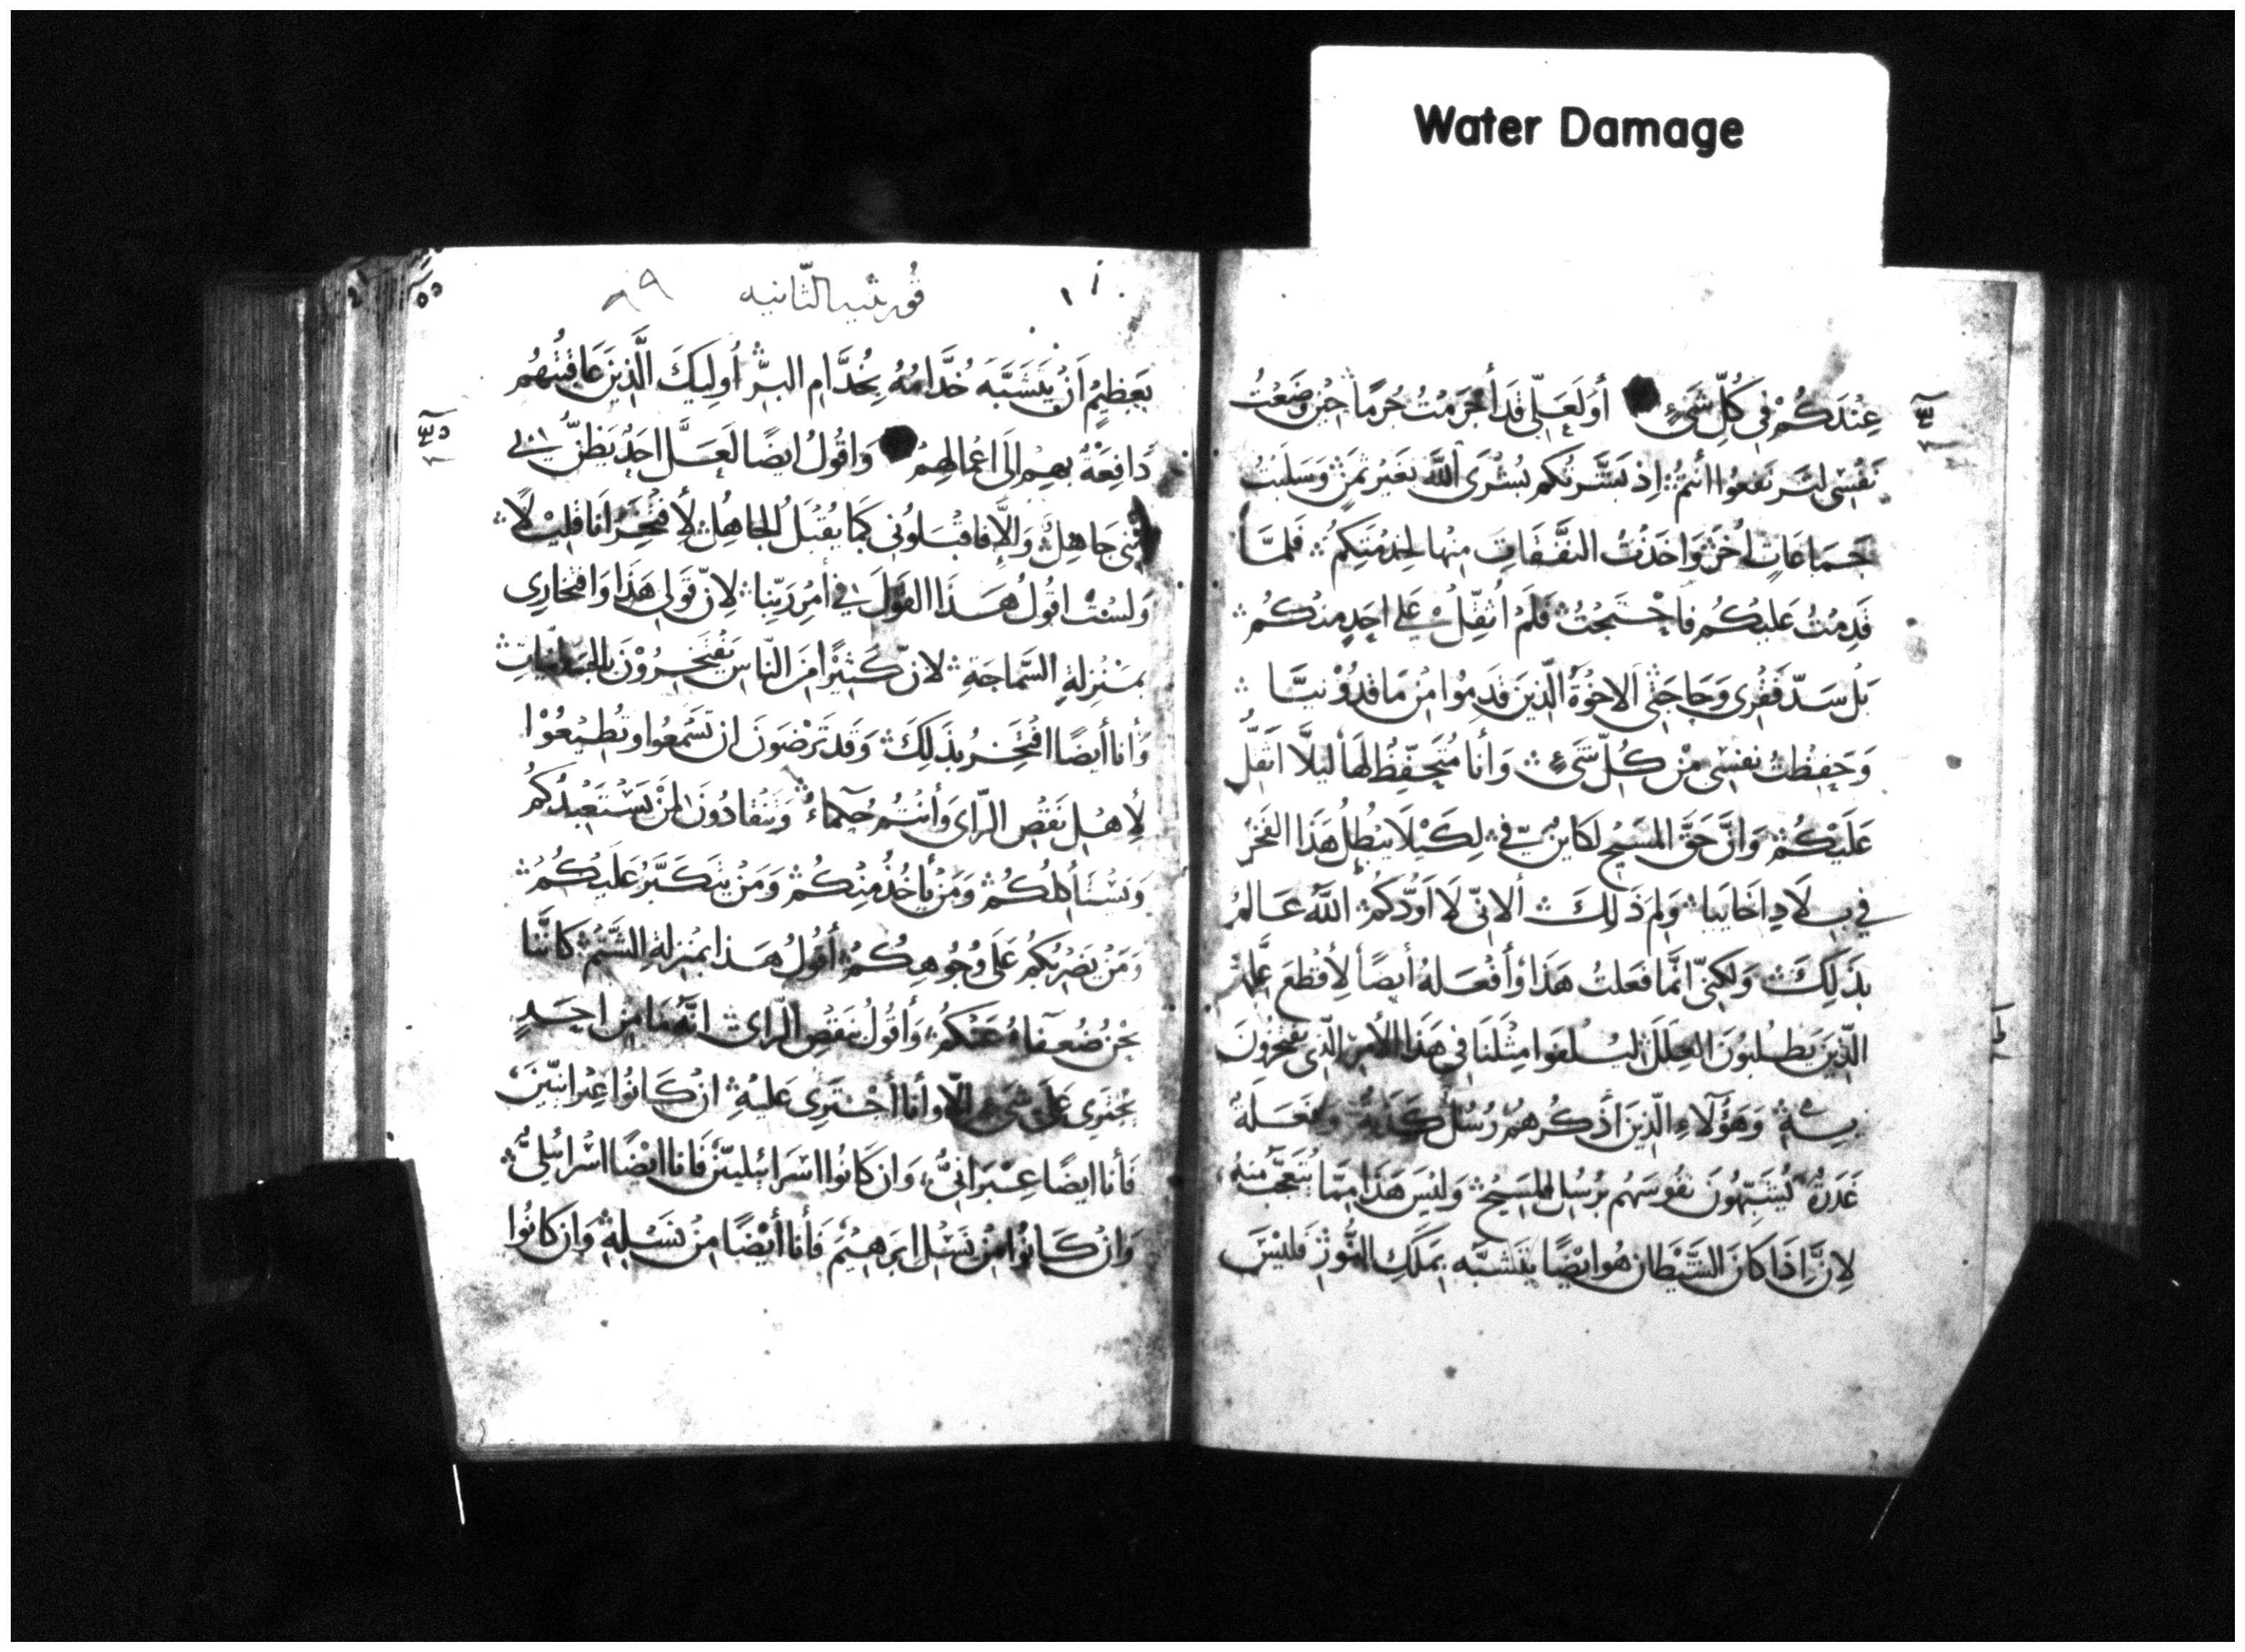 Water Damage
عِنْدَكُمْ في كُلِّ شَيْءٍ أَوَلَعَلّي قَد أَجْرَمْتُ جُرمًا حِيْنَ وَضَعْتُ
نَفْسِي لترتفعُوا أنتمُ اِذ بَشَّرتُكم بُشْرَى اللَّه بغَيْر ثمَنْ وَسَلَبْتُ
جَمَاعَاتٍ اُخَرْ وَاخَذْتُ النفَقَاتِ مِنها لخِدْمَتِكُمْ فَلمّا
قَدِمْتُ عَليكُم فَاحْتَجْتُ فَلَمْ اُثقِّلْ عَلى اَحَدٍ مِنكُمْ
بَلْ سَدّ فَقْرِى وَحَاجَتي الاخوَةُ الّذِينَ قَدِمُوا مِنْ مَاقدُوْنيّا
وَحَفِظتُ نفسِي مِنْ كُلّ شَيْءٍ وَأنا مُتَحَفِّظُ لهَا ليلَّا اثَقِّلْ
عَلَيْكُمْ وَانَّ حَقَّ المَسِيْحِ لكَاينٌ فيّ لِكَيْلَا يَبْطُلْ هَذا الفَخْرْ
في بِلَادِ اَخَايَيا وَلِمَ ذَلِكَ أَلانِّي لَا اَوَدُّكُمْ اللَّه عَالمُ
بذَلِكَ وَلكِنّي انَّمَا فَعَلتُ هَذَا وَأفْعَلهُ أيضًا لِأقطَعَ عِلَّة
الّذِينَ يَطْلبُونَ العِلَلَ ليُلْفَوا مِثْلَنَا في هَذَا الأمِر الّذِى يَفتخِرُونَ
بِهِ وَهَؤُلَاءِ الّذِينَ أذكُرهُمْ رُسُل كَذَبَة وَفَعَلَةٌ
غَدَرَةٌ يُشَبِّهُونَ نفُوسَهُم برُسُل المسِيْحْ وَليْسَ هَذَا مِمّا يُتعَجّبُ مِنهُ
لِانَّ اِذَا كَانَ الشّيْطَان هُوَ ايْضًا يَتَشَبَّه بمَلَكِ النُّورْ فليْسَ
قُورنثيه الثّانيه
بعَظِيْمٍ اَنْ يَتَشَبَّه خُدَّامُهُ بِخُدَّامِ البِرّ اُولِيكَ الَّذِينَ عَاقِبتُهُم
دَافِعَةٌ بهِم اِلَى اعْمَالِهمْ وَاقُولُ ايضًا لَعَلَّ اَحَدٌ يَظنُّ بي
أنّي جَاهِلْ وَاِلَّا فاقبَلوُني كَمَا يُقْبَلُ الجَاهِلْ لِأفْتَخِرَ اَنَا قَلِيْلًا
وَلَسْتُ اقُولُ هَذَا القَوْلَ في أمْرِ رَبِّنا لِانّ قَولي هَذَا وَافْتِخَارِى
بمَنْزِلةِ السَّمَاجَةِ لانّ كَثِيْرًا مِنَ النّاسِ يَفْتَخِرُوْنَ بِالجَسَدَانِيّاتِ
وَأنا أيضًا افْتَخِر بذَلِكَ وَقَد تَرْضَوْنَ ان تَسْمَعُوا وتُطِيْعُوْا
لِأهْلِ نَقْصِ الرّاي وَأنْتُم حُكَمَاءُ وَتَنْقادُونَ لمَنْ يَسْتَعْبدُكُمْ
وَيَسْتَأكِلُكُمْ وَمَنْ يأخُذُ مِنْكُمْ وَمَنْ يَتكَبَّرُ عَلَيْكُمْ
وَمَنْ يَضربُكُمْ عَلَى وُجُوهِكُمْ أقُولُ هَذا بمَنْزلةِ الشّتْمْ كَانَّنَا
نحْنُ ضُعَفَاءُ عَنكُم وَأقُولُ بنَقْصِ الرّاي انَّه مَا مِنْ احَدٍ
يَجْتَرِى عَلى شَيْءٍ اِلّا وَأنا أجْتَرِى عَليْهِ انْ كَانُوا عِبْرَانِيّيْن
فَأنا ايضًا عِبْرَانيٌّ وَان كَانُوا اسْرَائِيليّيْن فَانا ايْضًا اسْرَائِيْليٌّ
وَانْ كَانُوا مِنْ نَسْل ابرَهِيْمَ فَأنا أيْضًا مِنْ نَسْلِهِ وَان كانُوا